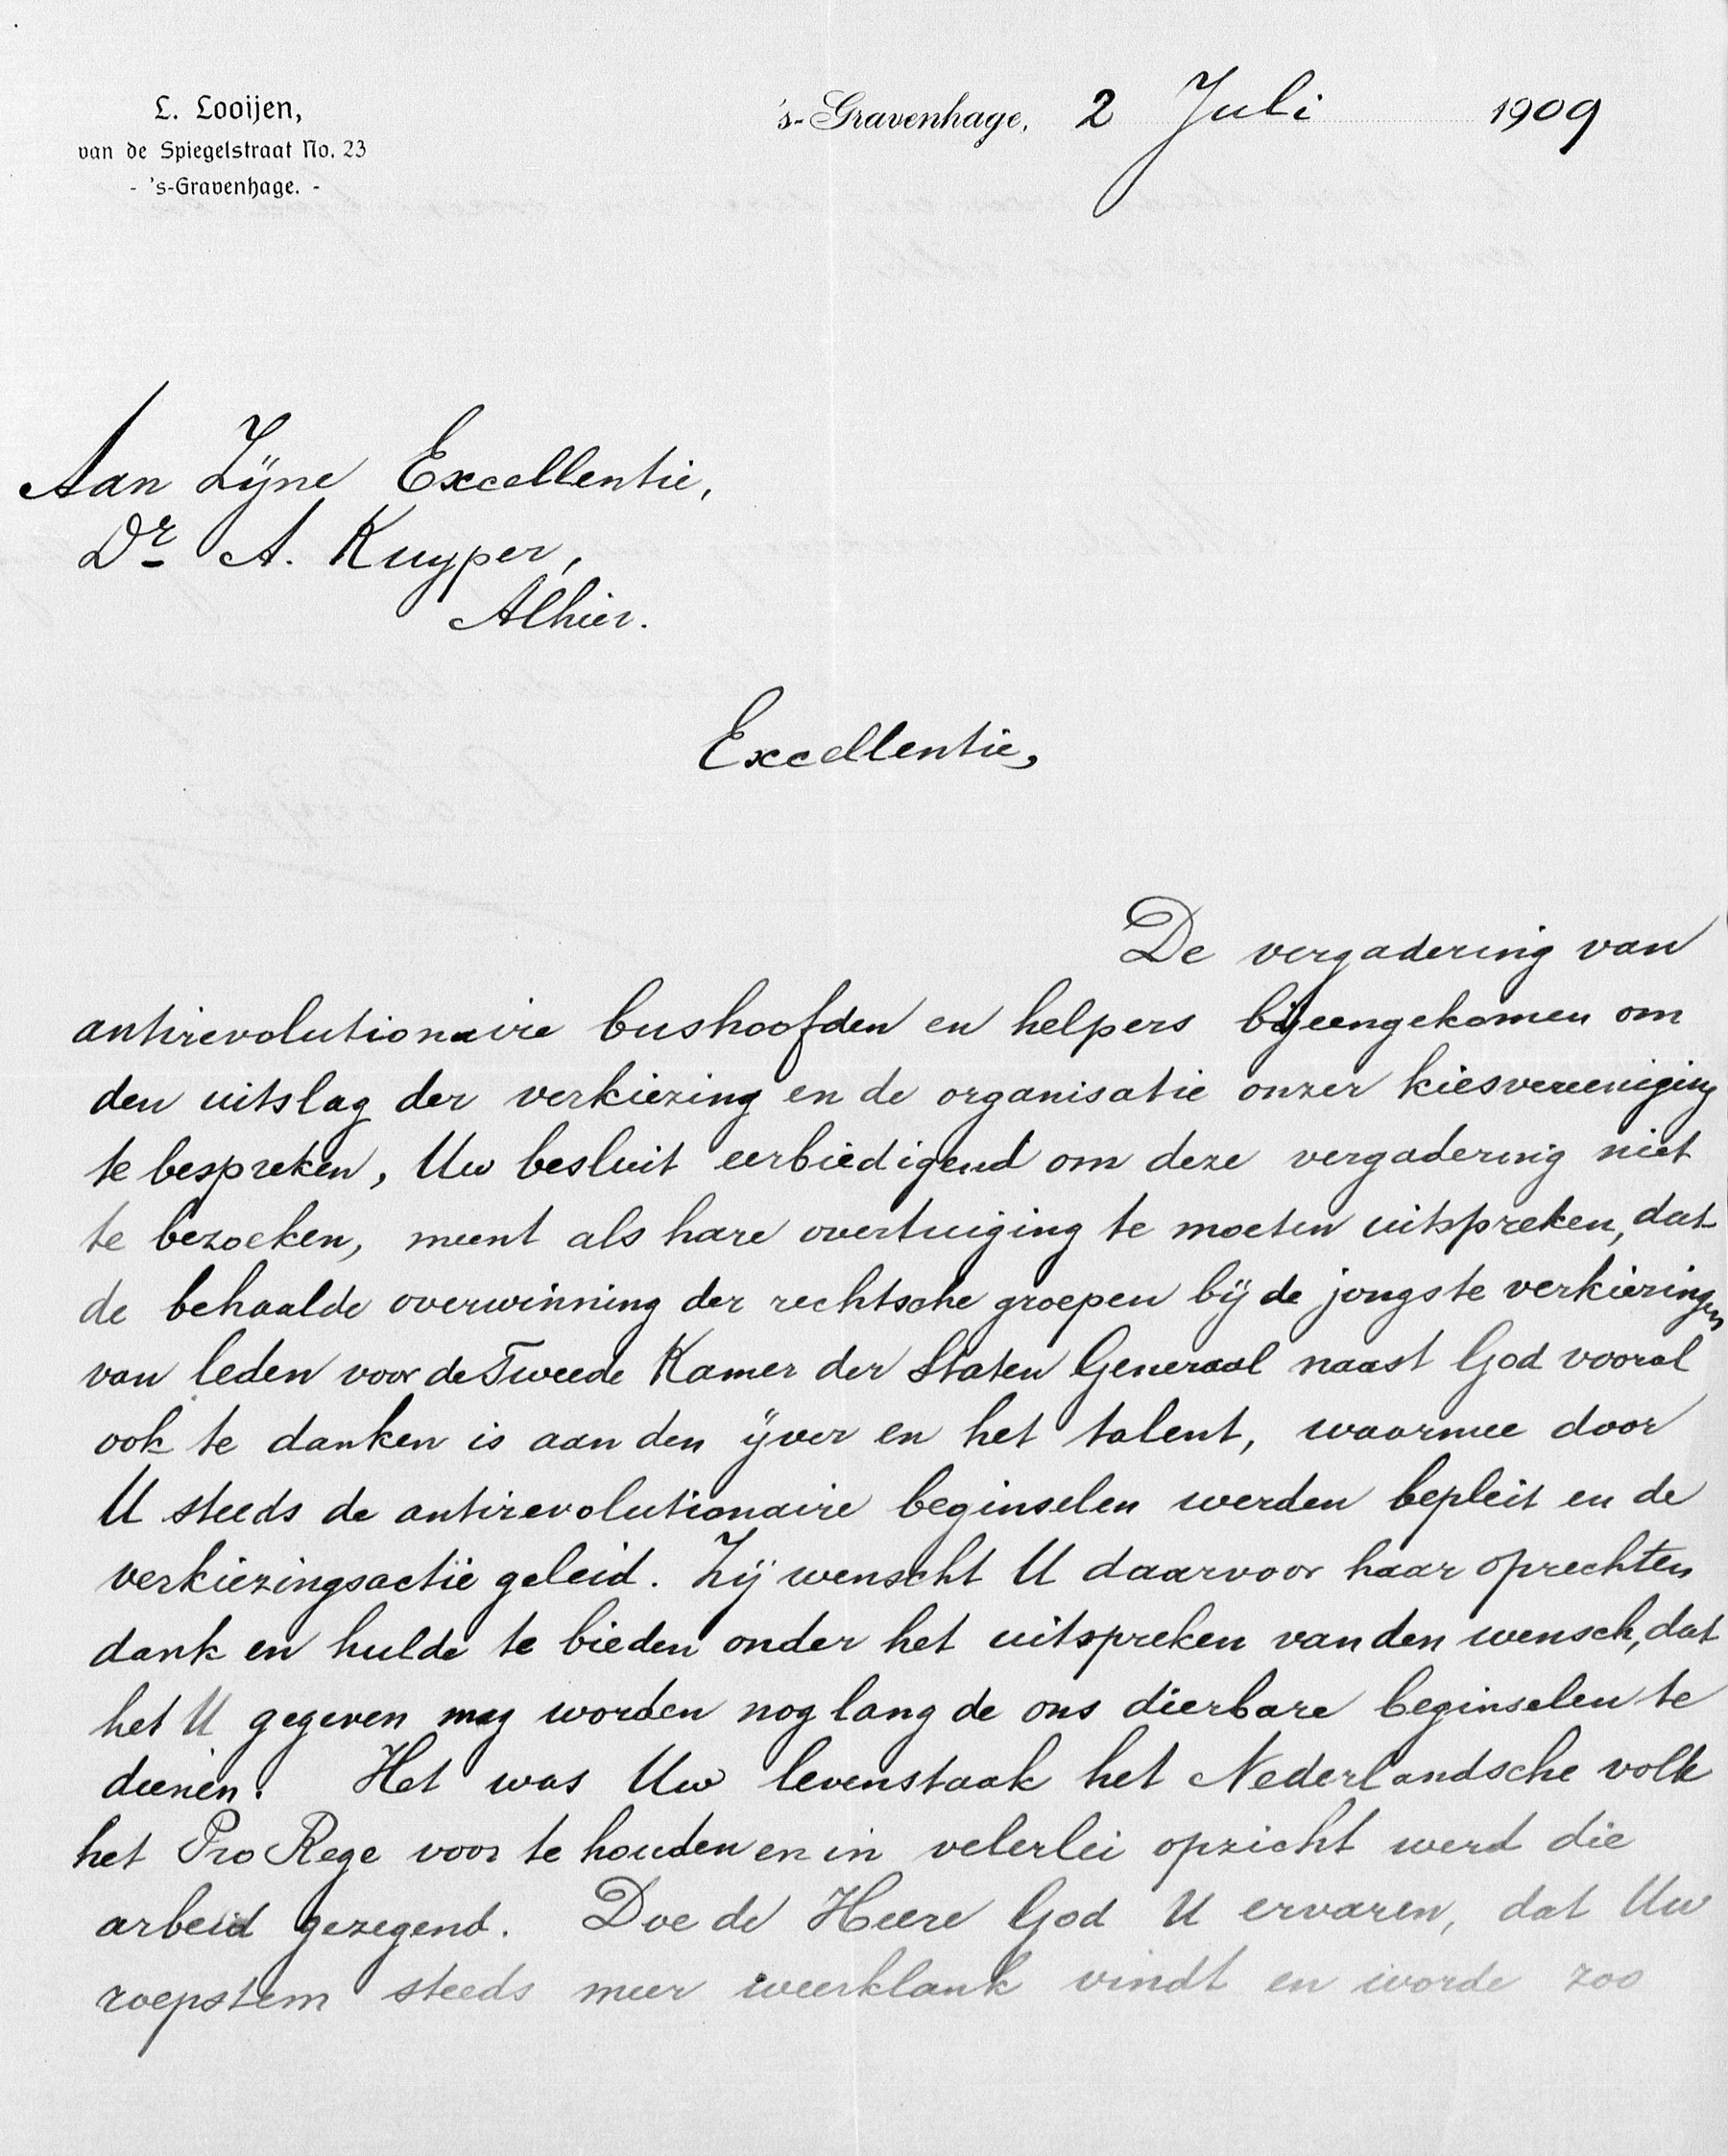 L. Looijen,
van de Spiegelstraat No. 23
- 's-Gravenhage. -
's-Gravenhage, 2 Juli 1909
Aan Zijne Excellentie,
Dr A. Kuyper,
Alhier.
Excellentie,
De vergadering van
antirevolutionaire bushoofden en helpers bijeengekomen om
den uitslag der verkiezing en de organisatie onzer kiesvereeniging
te bespreken, Uw besluit eerbiedigend om deze vergadering niet
te bezoeken, meent als hare overtuiging te moeten uitspreken, dat
de behaalde overwinning der rechtsche groepen bij de jongste verkiezingen
van leden voor de Tweede Kamer der Staten Generaal naast God vooral
ook te danken is aan den ijver en het talent, waarmee door
U steeds de antirevolutionaire beginselen werden bepleit en de
verkiezingsactie geleid. Zij wenscht U daarvoor haar oprechten
dank en hulde te bieden onder het uitspreken van den wensch, dat
het U gegeven mag worden nog lang de ons dierbare beginselen te
dienen. Het was Uw levenstaak het Nederlandsche volk
het Pro Rege voor te houden en in velerlei opzicht werd die
arbeid gezegend. Doe de Heere God U ervaren, dat Uw
roepstem steeds meer weerklank vindt en worde zoo